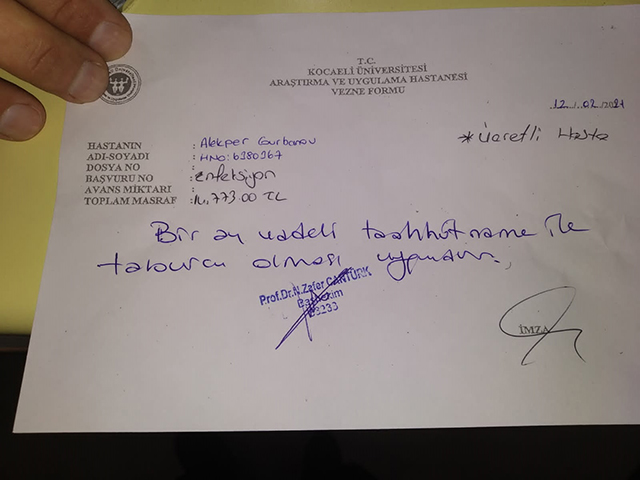 T.C.
KOCAELİ ÜNİVERSİTESİ
ARAŞTIRMA VE UYGULAMA HASTANESİ
VEZNE FORMU
12/02/2021
*Ücretli Hasta
HASTANIN
ADI-SOYADI : Alekper Gurbanov
DOSYA NO : HNO: 6380367
BAŞVURU NO : Enfeksiyon
AVANS MİKTARI :
TOPLAM MASRAF : 14.773.00 TL
Bir ay vadeli taahhütname ile
taburcu olması uygundur.
Prof.Dr.N.Zafer CANTÜRK
Başhekim
İMZA